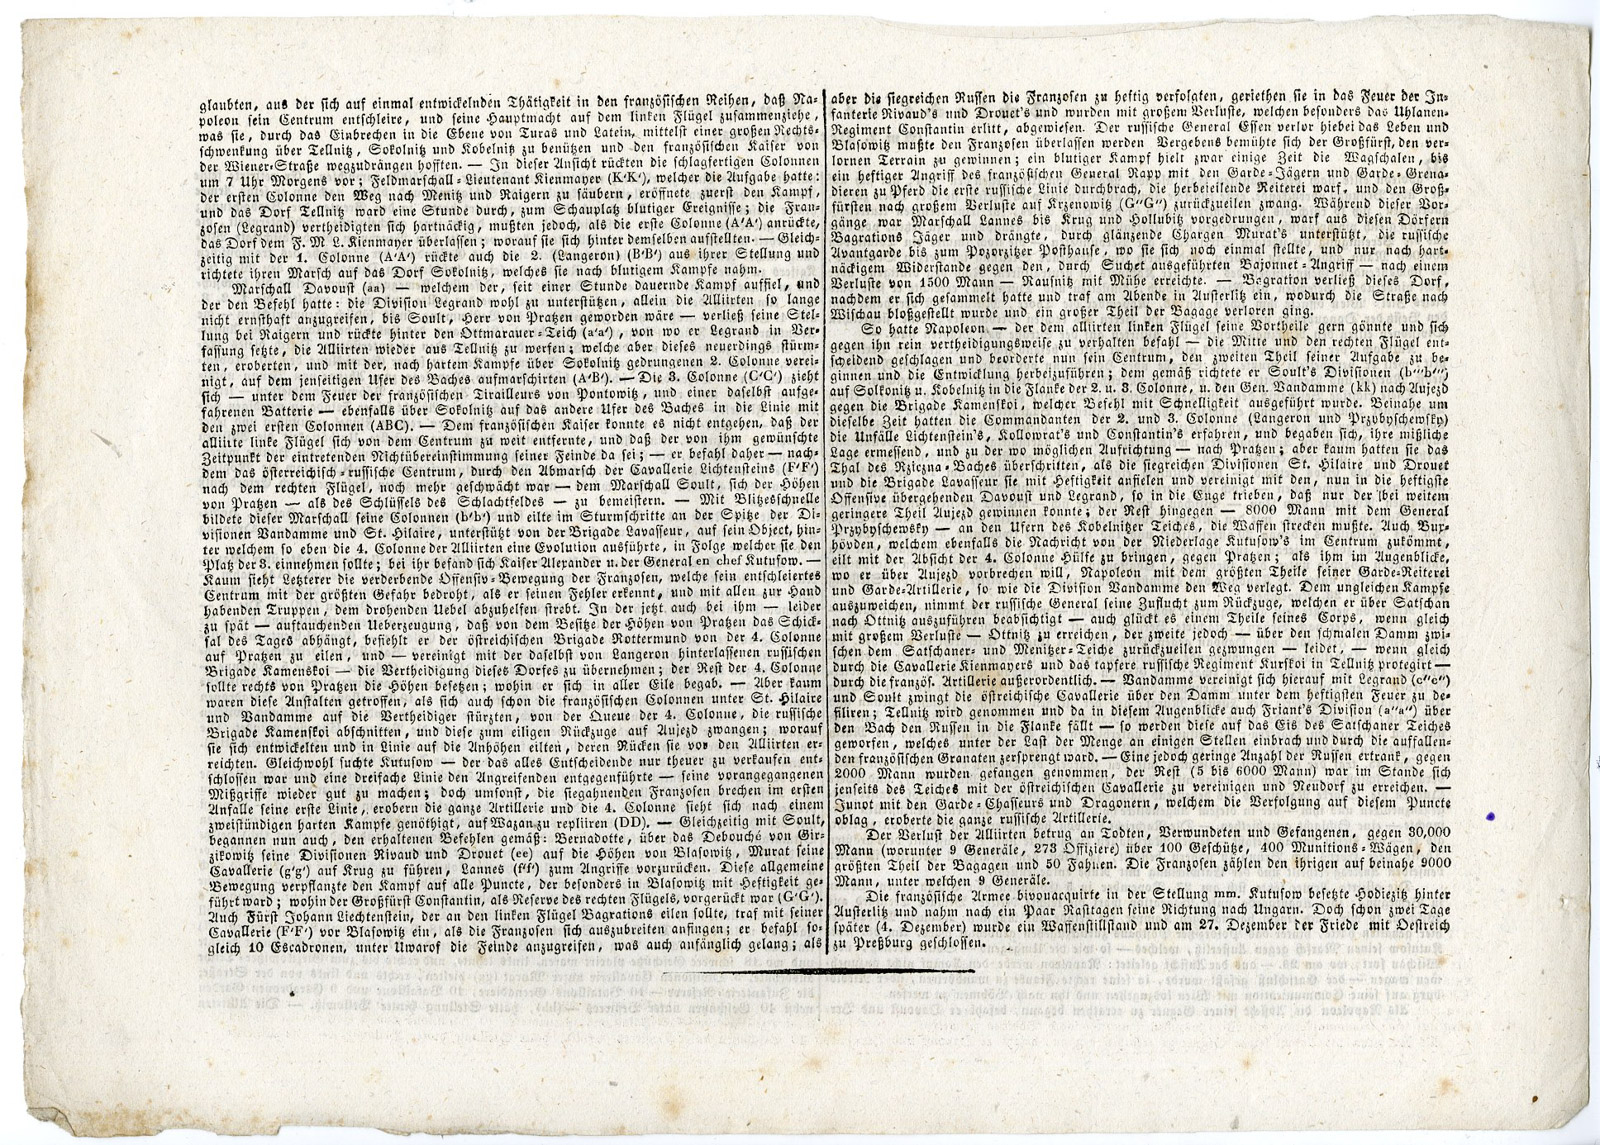 glaubten, aus der sich auf einmal entwickelnden Thätigkeit in den französischen Reihen, daß Na-
poleon sein Centrum entschleire, und seine Hauptmacht auf dem linken Flügel zusammenziehe,
was sie, durch das Einbrechen in die Ebene von Turas und Latein, mittelst einer großen Rechts-
schwenkung über Tellnitz, Sokolnitz und Kobelnitz zu benützen und den französischen Kaiser von
der Wiener-Straße wegzudrängen hofften. — In dieser Ansicht rückten die schlagfertigen Colonnen
um 7 Uhr Morgens vor; Feldmarschall-Lieutenant Kienmayer (K'K'), welcher die Aufgabe hatte:
der ersten Colonne den Weg nach Menitz und Raigern zu säubern, eröffnete zuerst den Kampf,
und das Dorf Tellnitz ward eine Stunde durch, zum Schauplatz blutiger Ereignisse; die Fran-
zosen (Legrand) vertheidigten sich hartnäckig, mußten jedoch, als die erste Colonne (A'A') anrückte,
das Dorf dem F. M L. Kienmayer überlassen; worauf sie sich hinter demselben aufstellten. — Gleich-
zeitig mit der 1. Colonne (A'A') rückte auch die 2. (Langeron) (B'B') aus ihrer Stellung und
richtete ihren Marsch auf das Dorf Sokolnitz, welches sie nach blutigem Kampfe nahm.
Marschall Davoust (aa) — welchem der, seit einer Stunde dauernde Kampf auffiel, und
der den Befehl hatte: die Division Legrand wohl zu unterstützen, allein die Alliirten so lange
nicht ernsthaft anzugreifen, bis Soult, Herr von Pratzen geworden wäre — verließ seine Stel-
lung bei Raigern und rückte hinter den Ottmarauer-Teich (a'a'), von wo er Legrand in Ver-
fassung setzte, die Alliirten wieder aus Tellnitz zu werfen; welche aber dieses neuerdings stürm-
ten, eroberten, und mit der, nach hartem Kampfe über Sokolnitz gedrungenen 2. Colonne verei-
nigt, auf dem jenseitigen Ufer des Baches aufmarschirten (A'B'). — Die 3. Colonne (C'C') zieht
sich — unter dem Feuer der französischen Tirailleurs von Pontowitz, und einer daselbst aufge-
fahrenen Batterie — ebenfalls über Sokolnitz auf das andere Ufer des Baches in die Linie mit
den zwei ersten Colonnen (ABC). — Dem französischen Kaiser konnte es nicht entgehen, daß der
alliirte linke Flügel sich von dem Centrum zu weit entfernte, und daß der von ihm gewünschte
Zeitpunkt der eintretenden Nichtübereinstimmung seiner Feinde da sei; — er befahl daher — nach-
dem das österreichisch-russische Centrum, durch den Abmarsch der Cavallerie Lichtensteins (F'F')
nach dem rechten Flügel, noch mehr geschwächt war — dem Marschall Soult, sich der Höhen
von Pratzen — als des Schlüssels des Schlachtfeldes — zu bemeistern. — Mit Blitzesschnelle
bildete dieser Marschall seine Colonnen (b'b') und eilte im Sturmschritte an der Spitze der Di-
visionen Vandamme und St. Hilaire, unterstützt von der Brigade Lavasseur, auf sein Object, hin-
ter welchem so eben die 4. Colonne der Alliirten eine Evolution ausführte, in Folge welcher sie den
Platz der 3. einnehmen sollte; bei ihr befand sich Kaiser Alexander u. der General en chef Kutusow. —
Kaum sieht Letzterer die verderbende Offensiv-Bewegung der Franzosen, welche sein entschleiertes
Centrum mit der größten Gefahr bedroht, als er seinen Fehler erkennt, und mit allen zur Hand
habenden Truppen, dem drohenden Uebel abzuhelfen strebt. In der jetzt auch bei ihm — leider
zu spät — auftauchenden Ueberzeugung, daß von dem Besitze der Höhen von Pratzen das Schick-
sal des Tages abhängt, befiehlt er der östreichischen Brigade Rottermund von der 4. Colonne
auf Pratzen zu eilen, und — vereinigt mit der daselbst von Langeron hinterlassenen russischen
Brigade Kamenskoi — die Vertheidigung dieses Dorfes zu übernehmen; der Rest der 4. Colonne
sollte rechts von Pratzen die Höhen besetzen; wohin er sich in aller Eile begab. — Aber kaum
waren diese Anstalten getroffen, als sich auch schon die französischen Colonnen unter St. Hilaire
und Vandamme auf die Vertheidiger stürzten, von der Queue der 4. Colonne, die russische
Brigade Kamenskoi abschnitten, und diese zum eiligen Rückzuge auf Aujezd zwangen; worauf
sie sich entwickelten und in Linie auf die Anhöhen eilten, deren Rücken sie vor den Alliirten er-
reichten. Gleichwohl suchte Kutusow — der das alles Entscheidende nur theuer zu verkaufen ent-
schlossen war und eine dreifache Linie den Angreifenden entgegenführte — seine vorangegangenen
Mißgriffe wieder gut zu machen; doch umsonst, die siegahnenden Franzosen brechen im ersten
Anfalle seine erste Linie, erobern die ganze Artillerie und die 4. Colonne sieht sich nach einem
zweistündigen harten Kampfe genöthigt, auf Wazan zu repliiren (DD). — Gleichzeitig mit Soult,
begannen nun auch, den erhaltenen Befehlen gemäß: Bernadotte, über das Debouché von Gir-
zikowitz seine Divisionen Rivaud und Drouet (ee) auf die Höhen von Blasowitz, Murat seine
Cavallerie (g'g') auf Krug zu führen, Lannes (f'f') zum Angriffe vorzurücken. Diese allgemeine
Bewegung verpflanzte den Kampf auf alle Puncte, der besonders in Blasowitz mit Heftigkeit ge-
führt ward; wohin der Großfürst Constantin, als Reserve des rechten Flügels, vorgerückt war (G'G').
Auch Fürst Johann Liechtenstein, der an den linken Flügel Bagrations eilen sollte, traf mit seiner
Cavallerie (F'F') vor Blasowitz ein, als die Franzosen sich auszubreiten anfingen; er befahl so-
gleich 10 Escadronen, unter Uwarof die Feinde anzugreifen, was auch anfänglich gelang; als
aber die siegreichen Russen die Franzosen zu heftig verfolgten, geriethen sie in das Feuer der In-
fanterie Rivaud's und Drouet's und wurden mit großem Verluste, welchen besonders das Uhlanen-
Regiment Constantin erlitt, abgewiesen. Der russische General Essen verlor hiebei das Leben und
Blasowitz mußte den Franzosen überlassen werden Vergebens bemühte sich der Großfürst, den ver-
lornen Terrain zu gewinnen; ein blutiger Kampf hielt zwar einige Zeit die Wagschalen, bis
ein heftiger Angriff des französischen General Rapp mit den Garde-Jägern und Garde-Grena-
dieren zu Pferd die erste russische Linie durchbrach, die herbeieilende Reiterei warf, und den Groß-
fürsten nach großem Verluste auf Krzenowitz (G"G") zurückzueilen zwang. Während dieser Vor-
gänge war Marschall Lannes bis Krug und Hollubitz vorgedrungen, warf aus diesen Dörfern
Bagrations Jäger und drängte, durch glänzende Chargen Murat's unterstützt, die russische
Avantgarde bis zum Pozorzitzer Posthause, wo sie sich noch einmal stellte, und nur nach hart-
näckigem Widerstande gegen den, durch Suchet ausgeführten Bajonnet-Angriff — nach einem
Verluste von 1500 Mann — Rausnitz mit Mühe erreichte. — Begration verließ dieses Dorf,
nachdem er sich gesammelt hatte und traf am Abende in Austerlitz ein, wodurch die Straße nach
Wischau bloßgestellt wurde und ein großer Theil der Bagage verloren ging.
So hatte Napoleon — der dem alliirten linken Flügel seine Vortheile gern gönnte und sich
gegen ihn rein vertheidigungsweise zu verhalten befahl — die Mitte und den rechten Flügel ent-
scheidend geschlagen und beorderte nun sein Centrum, den zweiten Theil seiner Aufgabe zu be-
ginnen und die Entwicklung herbeizuführen; dem gemäß richtete er Soult's Divisionen (b"'b"')
auf Solkonitz u. Kobelnitz in die Flanke der 2. u. 3. Colonne, u. den Gen. Vandamme (kk) nach Aujezd
gegen die Brigade Kamenskoi, welcher Befehl mit Schnelligkeit ausgeführt wurde. Beinahe um
dieselbe Zeit hatten die Commandanten der 2. und 3. Colonne (Langeron und Przybyschewsky)
die Unfälle Lichtenstein's, Kollowrat's und Constantin's erfahren, und begaben sich, ihre mißliche
Lage ermessend, und zu der wo möglichen Aufrichtung — nach Pratzen; aber kaum hatten sie das
Thal des Rziczna-Baches überschritten, als die siegreichen Divisionen St. Hilaire und Drouet
und die Brigade Lavasseur sie mit Heftigkeit anfielen und vereinigt mit den, nun in die heftigste
Offensive übergehenden Davoust und Legrand, so in die Enge trieben, daß nur der bei weitem
geringere Theil Aujezd gewinnen konnte; der Rest hingegen — 8000 Mann mit dem General
Przybyschewsky — an den Ufern des Kobelnitzer Teiches, die Waffen strecken mußte. Auch Bux-
hövden, welchem ebenfalls die Nachricht von der Niederlage Kutusow's im Centrum zukömmt,
eilt mit der Absicht der 4. Colonne Hülfe zu bringen, gegen Pratzen; als ihm im Augenblicke,
wo er über Aujezd vorbrechen will, Napoleon mit dem größten Theile seiner Garde-Reiterei
und Garde-Artillerie, so wie die Division Vandamme den Weg verlegt. Dem ungleichen Kampfe
auszuweichen, nimmt der russische General seine Zuflucht zum Rückzuge, welchen er über Satschan
nach Ottnitz auszuführen beabsichtigt — auch glückt es einem Theile seines Corps, wenn gleich
mit großem Verluste — Ottnitz zu erreichen, der zweite jedoch — über den schmalen Damm zwi-
schen dem Satschaner- und Menitzer-Teiche zurückzueilen gezwungen — leidet, — wenn gleich
durch die Cavallerie Kienmayers und das tapfere russische Regiment Kurskoi in Tellnitz protegirt —
durch die französ. Artillerie außerordentlich. — Vandamme vereinigt sich hierauf mit Legrand (c"c")
und Soult zwingt die östreichische Cavallerie über den Damm unter dem heftigsten Feuer zu de-
filiren; Tellnitz wird genommen und da in diesem Augenblicke auch Friant's Division (a"a") über
den Bach den Russen in die Flanke fällt — so werden diese auf das Eis des Satschaner Teiches
geworfen, welches unter der Last der Menge an einigen Stellen einbrach und durch die auffallen-
den französischen Granaten zersprengt ward. — Eine jedoch geringe Anzahl der Russen ertrank, gegen
2000 Mann wurden gefangen genommen, der Rest (5 bis 6000 Mann) war im Stande sich
jenseits des Teiches mit der östreichischen Cavallerie zu vereinigen und Neudorf zu erreichen. —
Junot mit den Garde-Chasseurs und Dragonern, welchem die Verfolgung auf diesem Puncte
oblag, eroberte die ganze russische Artillerie.
Der Verlust der Alliirten betrug an Todten, Verwundeten und Gefangenen, gegen 30,000
Mann (worunter 9 Generäle, 273 Offiziere) über 100 Geschütze, 400 Munitions-Wägen, den
größten Theil der Bagagen und 50 Fahnen. Die Franzosen zählen den ihrigen auf beinahe 9000
Mann, unter welchen 9 Generäle.
Die französische Armee bivouacquirte in der Stellung mm. Kutusow besetzte Hodiezitz hinter
Austerlitz und nahm nach ein Paar Rasttagen seine Richtung nach Ungarn. Doch schon zwei Tage
später (4. Dezember) wurde ein Waffenstillstand und am 27. Dezember der Friede mit Oestreich
zu Preßburg geschlossen.